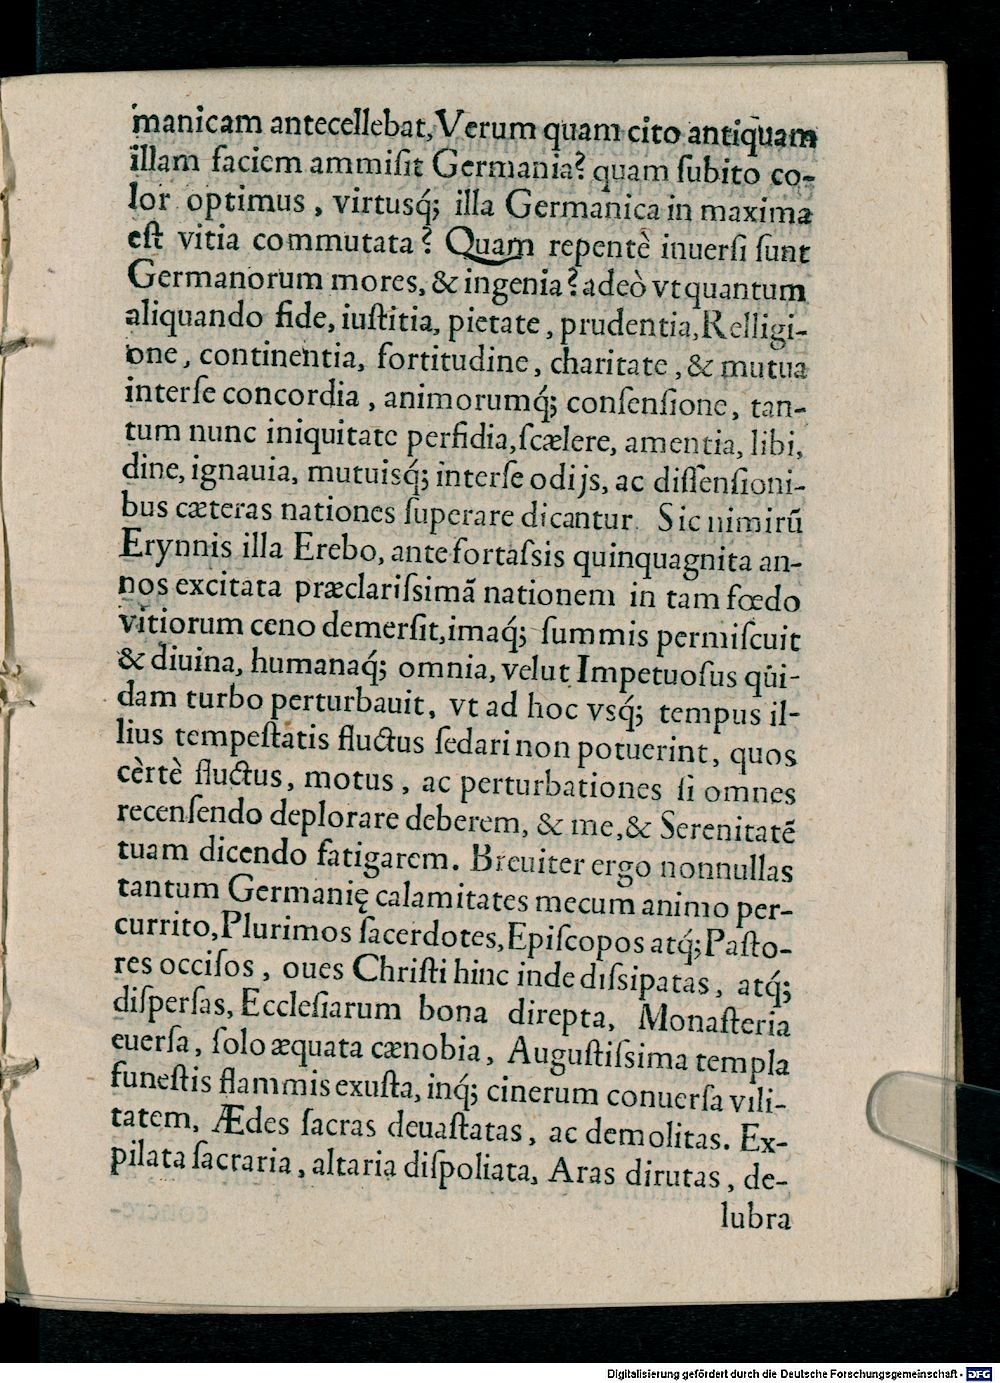 manicam antecellebat, Verum quam cito antiquam
illam faciem ammiſit Germania? quam ſubito co-
lor optimus, virtusq́; illa Germanica in maxima
eſt vitia commutata? Quam repentè inuerſi ſunt
Germanorum mores, & ingenia? adeò vt quantum
aliquando fide, iuſtitia, pietate, prudentia, Relligi-
one, continentia, fortitudine, charitate, & mutua
interſe concordia, animorumq́; conſenſione, tan-
tum nunc iniquitate perfidia, ſcælere, amentia, libi,
dine, ignauia, mutuisq́; interſe odijs, ac diſſenſioni-
bus cæteras nationes ſuperare dicantur. Sic nimirū
Erynnis illa Erebo, ante fortaſsis quinquagnita an-
nos excitata præclariſsimā nationem in tam fœdo
vitiorum ceno demerſit, imaq́; ſummis permiſcuit
& diuina, humanaq́; omnia, velut Impetuoſus qùi-
dam turbo perturbauit, vt ad hoc vsq́; tempus il-
lius tempeſtatis fluctus ſedari non potuerint, quos
cèrtè fluctus, motus, ac perturbationes ſi omnes
recenſendo deplorare deberem, & me, & Serenitatē
tuam dicendo fatigarem. Breuiter ergo nonnullas
tantum Germanię calamitates mecum animo per-
currito, Plurimos ſacerdotes, Epiſcopos atq́; Paſto-
res occiſos, oues Chriſti hinc inde diſsipatas, atq́;
diſperſas, Eccleſiarum bona direpta, Monaſteria
euerſa, ſolo æquata cænobia, Auguſtiſsima templa
funeſtis flammis exuſta, inq́; cinerum conuerſa vili-
tatem, Ædes ſacras deuaſtatas, ac demolitas. Ex-
pilata ſacraria, altaria diſpoliata, Aras dirutas, de-
lubra
Digitalisierung gefördert durch die Deutsche Forschungsgemeinschaft - DFG